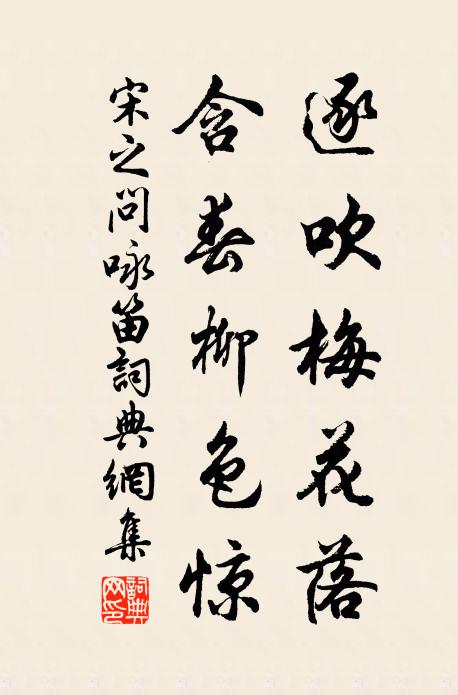 逐吹梅花落
含春柳色惊
宋之問咏笛詞典網集
詞典网印